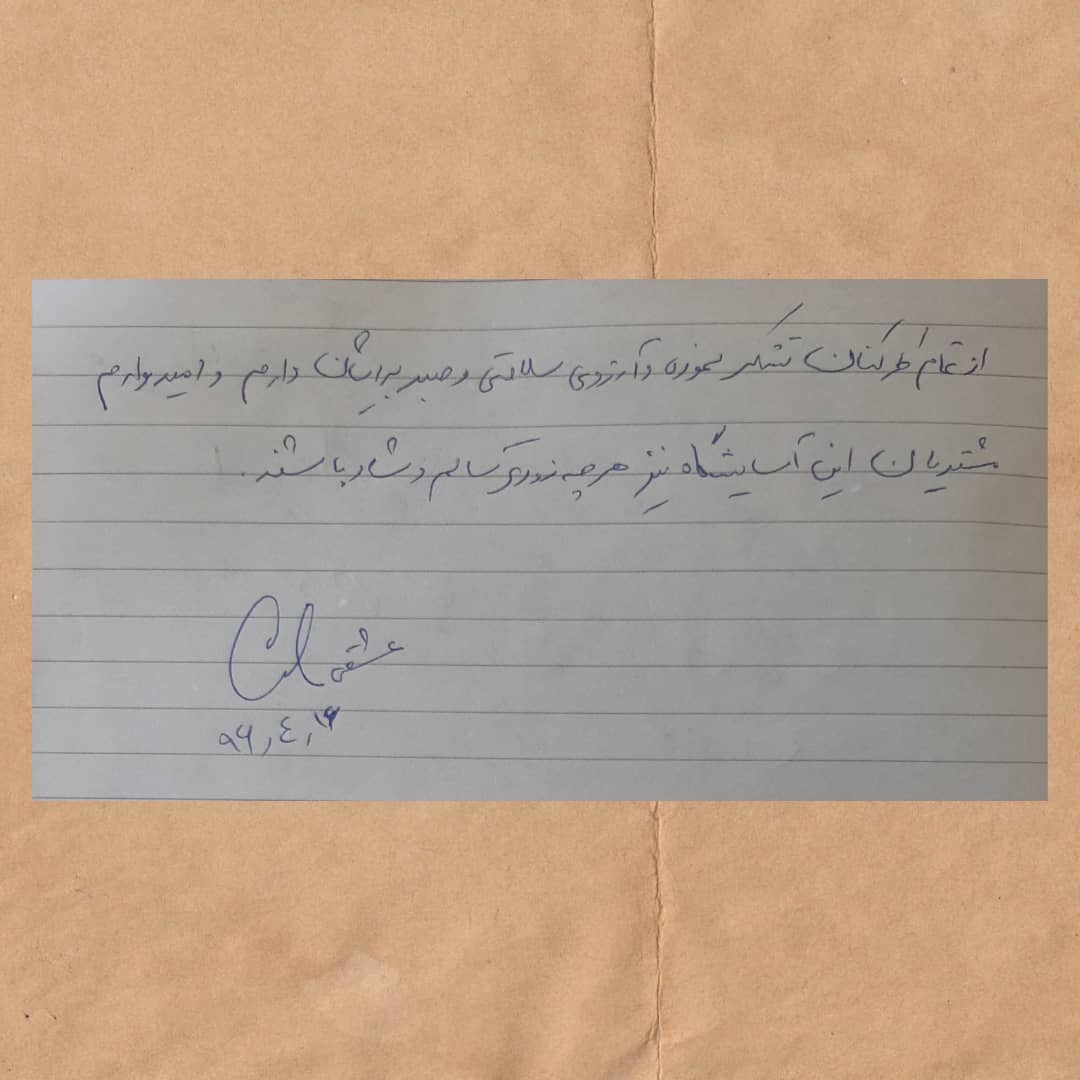 از تمام کارکنان تشکر نموده و آرزوی سلامتی و صبر برایشان دارم و امیدوارم
مشتریان این آسایشگاه نیز هرچه زودتر سالم و شاد باشند.
۹۶,٤,۱۶